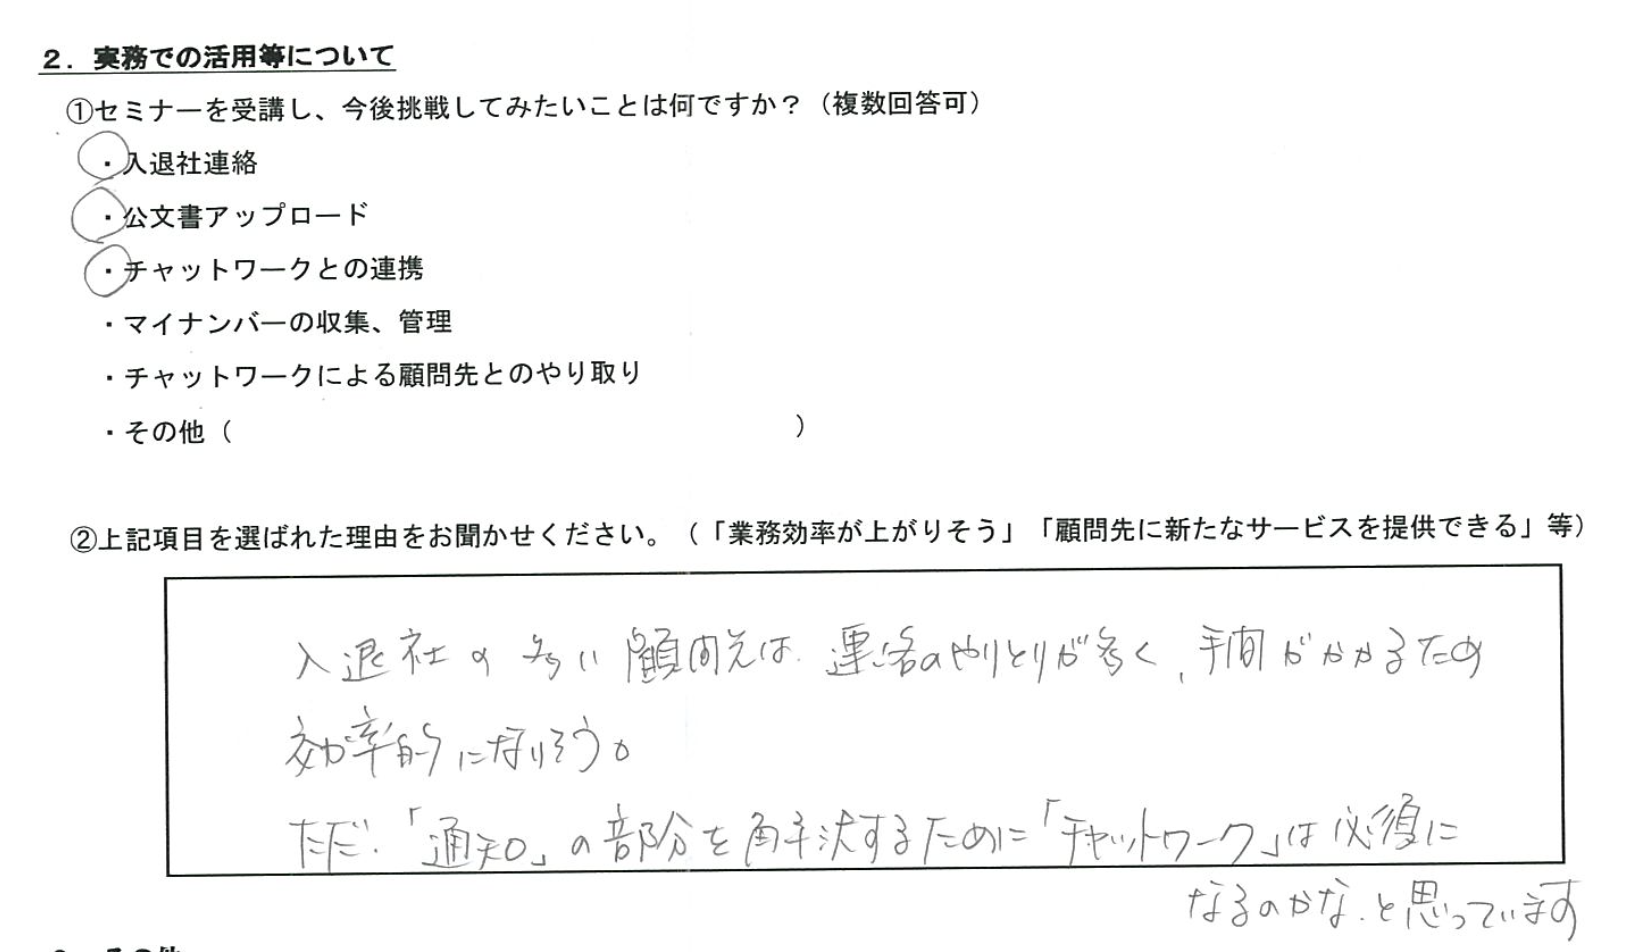 ２．実務での活用等について
①セミナーを受講し、今後挑戦してみたいことは何ですか？（複数回答可）
・入退社連絡
・公文書アップロード
・チャットワークとの連携
・マイナンバーの収集、管理
・チャットワークによる顧問先とのやり取り
・その他（　　　　　　　　　　　　　　　　　　　　）
②上記項目を選ばれた理由をお聞かせください。（「業務効率が上がりそう」「顧問先に新たなサービスを提供できる」等）
入退社の多い顧問先は、連絡のやりとりが多く、手間がかかるため
効率的になりそう。
ただ、「通知」の部分を解決するために「チャットワーク」は必須に
なるのかな、と思っています